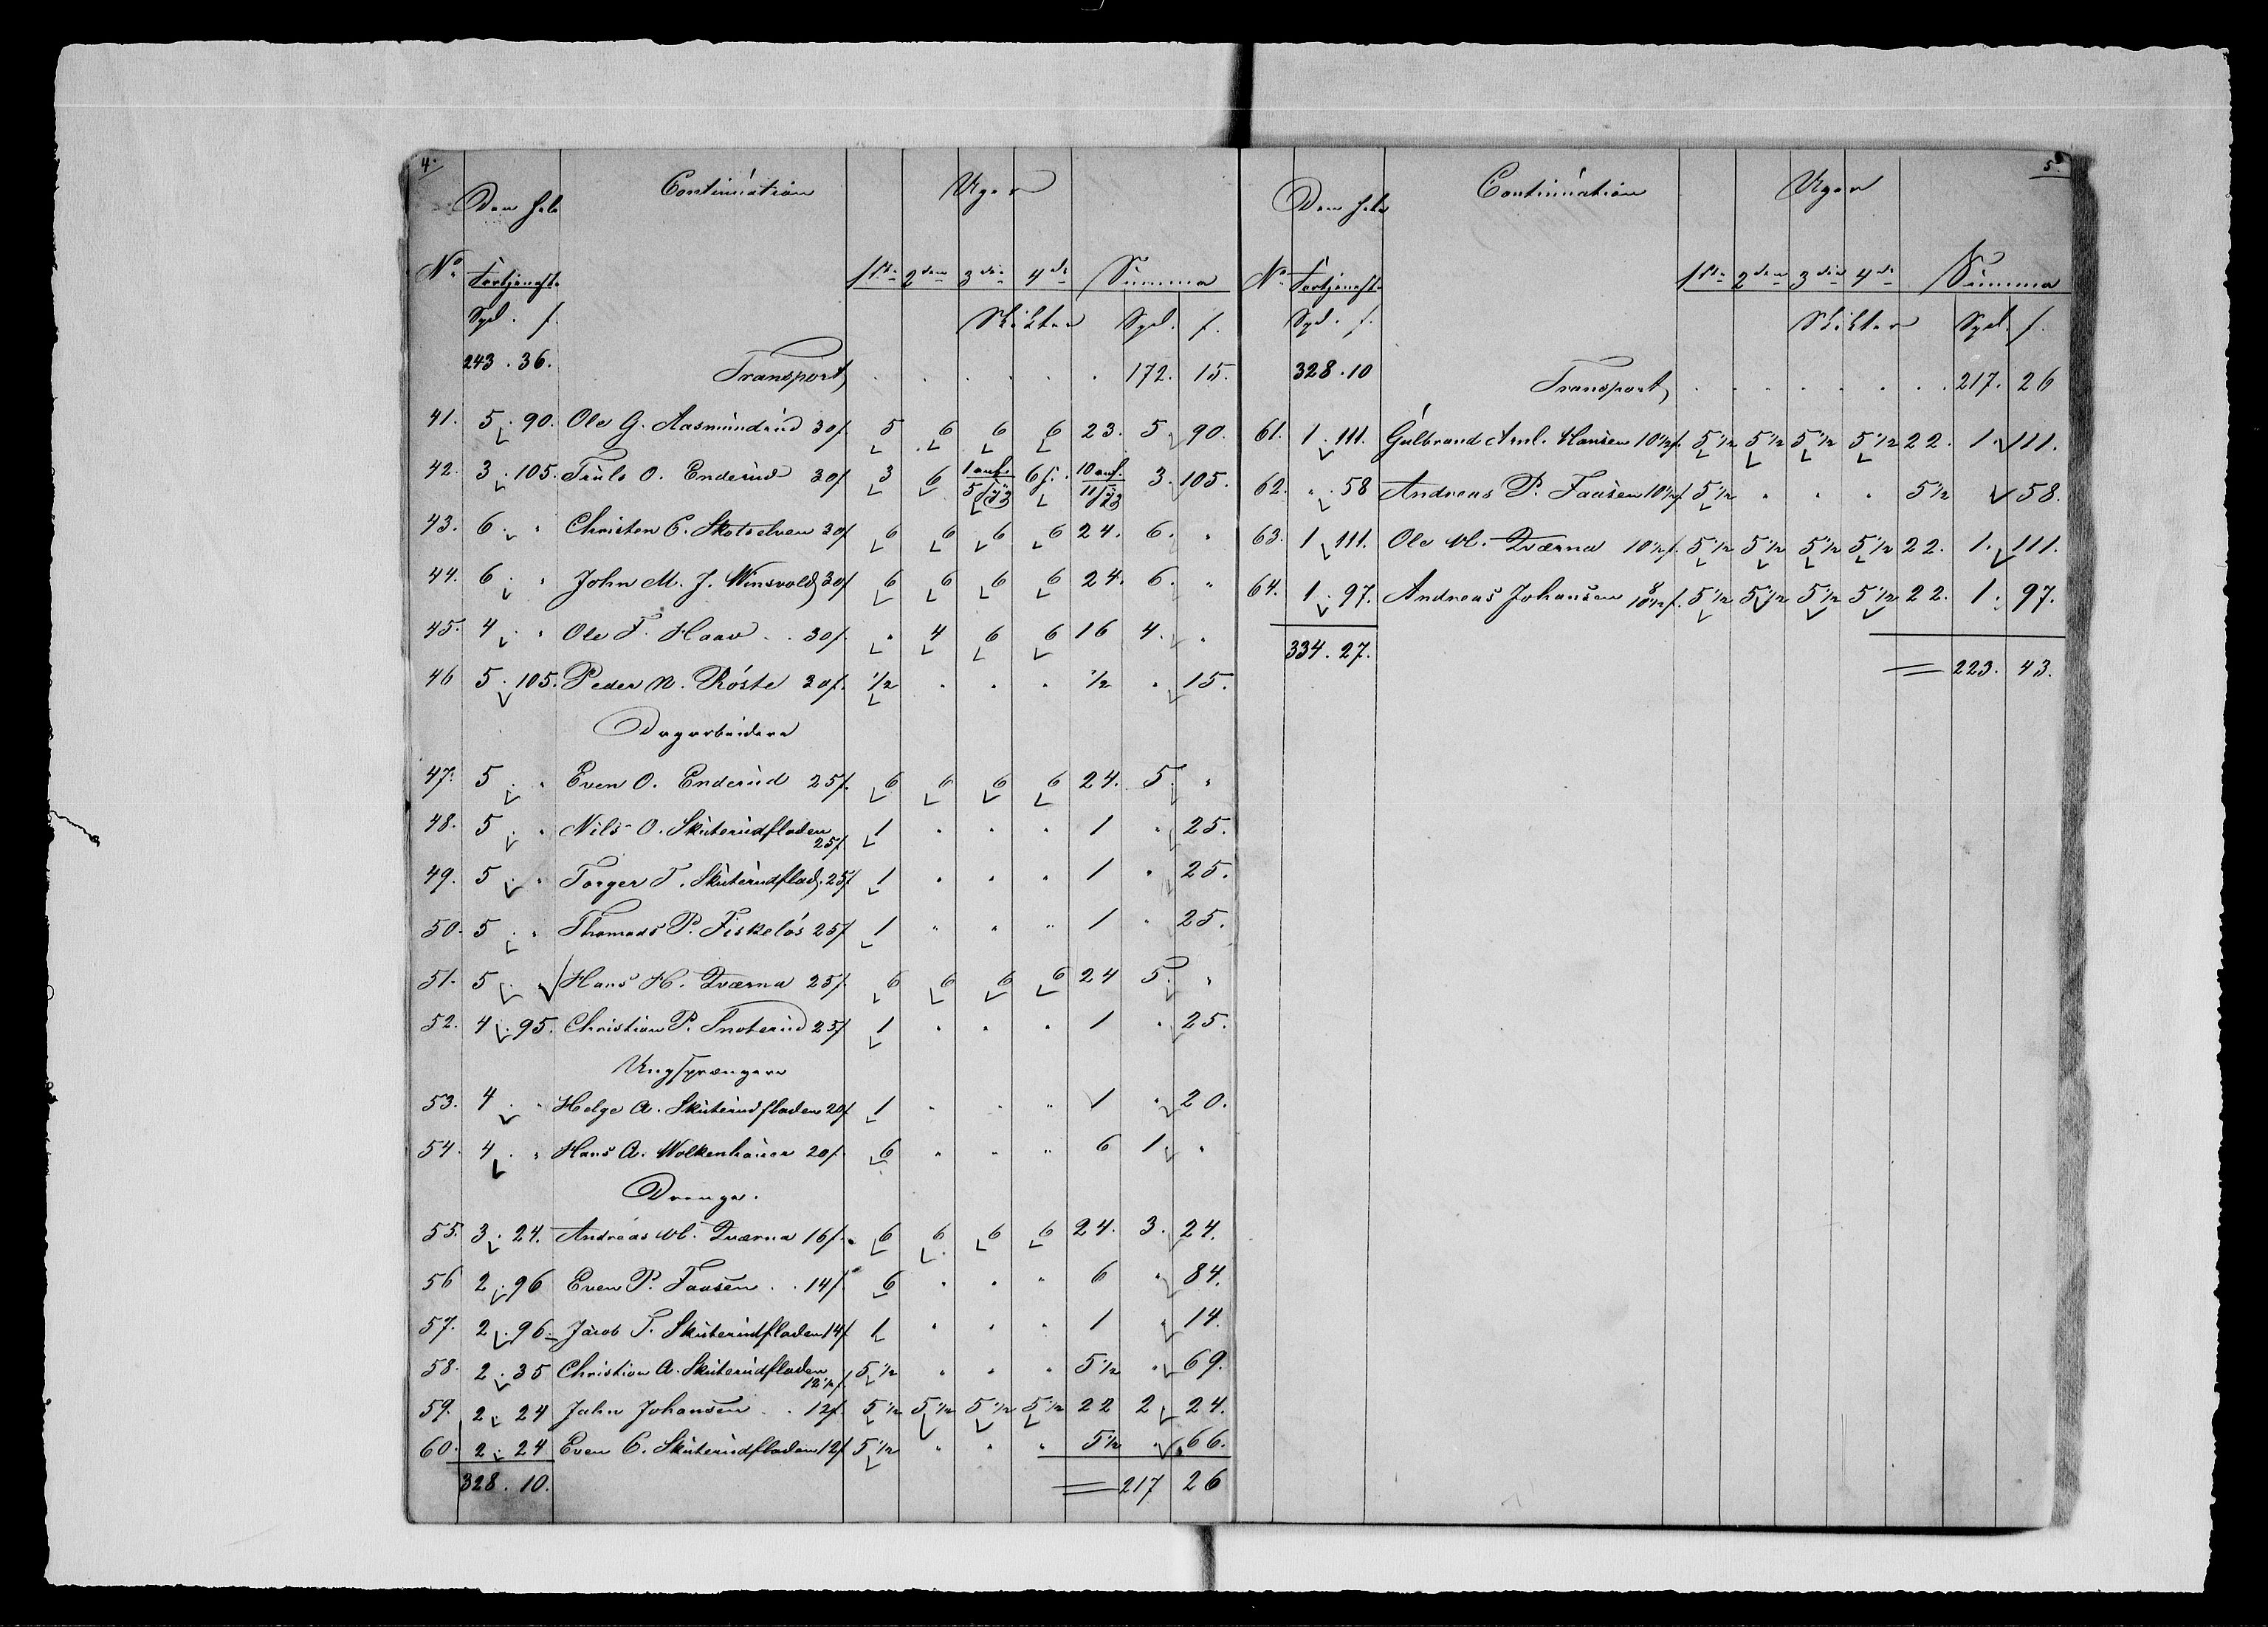 4.
Den hele Continuation Uger
No. Fortjeneste 1ste 2den 3die 4de Summa
Spd. s. Skikter Spd. s.
243. 36. Transport . . . . . . 172. 15.
41. 5. 90. Ole G. Aasmundrud 30 s. 5 6 6 6 23. 5. 90.
42. 3. 105. Truls O. Enderud 30 s 3 6 6 s. 3. 105.
43. 6. " Christen C. Skotselven 30 s 6 6 6 6 24. 6. "
44. 6. " John M. J. Winsvold 30 s 6 6 6 6 24. 6. "
45. 4. " Ole F. Haav . . 30 s. " 4 6 6 16 4. "
46 5. 105. Peder N. Röste 30 s. 1/2 " " " 1/2 " 15.
Dagarbeidere
47. 5. " Even O. Enderud 25 s. 6 6 6 6 24. 5. "
48. 5. " Nils O. Skuterudfladen 25 s 1 " " " 1 " 25.
49. 5. " Torger T. Skuterudflad. 25 s 1 " " " 1 " 25.
50. 5. " Thomads P. Fiskelös 25 s 1 " " " 1 " 25.
51. 5. " Hans H. Tværna 25 s. 6 6 6 6 24 5. "
52. 4. 95. Christian P. Snoterud 25 s 1 " " " 1 " 25.
Ungsprængere
53. 4. " Helge A. Skuterudfladen 20 s 1 " " " 1 " 20.
54. 4. " Hans A. Wolkenhauer 20 s. 6 " " " 6 1. "
Drenge.
55. 3. 24. Andreas Tværna 16 s. 6 6 6 6 24. 3. 24.
56 2. 96 Even P. Faasen . . 14 s. 6 " " " 6 " 84.
57. 2. 96. Jacob T. Skuterudfladen 14 s 1 " " " 1 " 14.
58. 2. 35 Christian A. Skuterudfladen 12 1/2 s. 5 1/2 " " " 5 1/2 " 69.
59. 2. 24 John Johansen . . 12 s. 5 1/2 5 1/2 5 1/2 5 1/2 22 2 24.
60. 2. 24 Even C. Skuterudfladen 12 s 5 1/2 " " " 5 1/2 " 66.
328. 10. = 217 26
5.
Den hele Continuation Uger
No. Fortjeneste 1ste 2den 3die 4de Summa
Spd. s. Skikter Spd. s.
328. 10 Transport . . . . . . . 217. 26
61. 1. 111. Gulbrand Aml. Hansen 10 1/2 s. 5 1/2 5 1/2 5 1/2 5 1/2 22. 1. 111.
62. " 58 Andreas P. Faasen 10 1/2 s 5 1/2 " " " 5 1/2 58.
63. 1 111. Ole Tværna 10 1/2 s. 5 1/2 5 1/2 5 1/2 5 1/2 22. 1. 111.
64. 1. 97. Andreas Johansen 10 1/2 s. 5 1/2 5 1/2 5 1/2 5 1/2 22. 1. 97.
334. 27. = 223. 43.